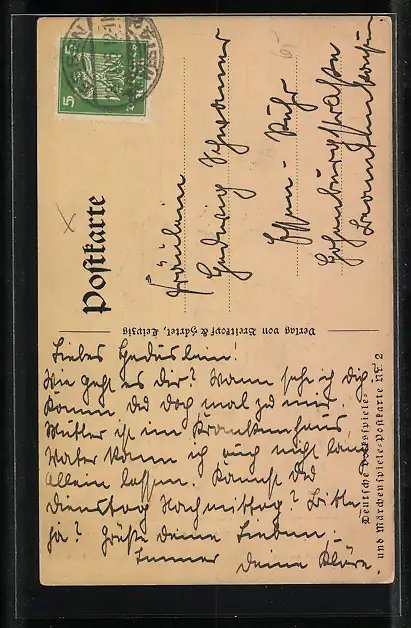 ESSEN
5
Postkarte
65
Fräulein
Hedwig Schwanner
Essen-Ruhr
Hohenburgstraße
Krankenhaus
Verlag von Breitkopf & Härtel, Leipzig
Deutsche Volksspiele-
und Märchenspiele-Postkarte Nr. 2
Liebes Hedulein!
Wie geht es dir? Wann sehe ich dich
Komm du doch mal zu mir.
Mutter ist im Krankenhaus
Vater kann ich auch nicht lang
allein lassen. Kannst du
Dienstag Nachmittag? Bitte
ja? Grüße deine Lieben.
Immer deine Kläre